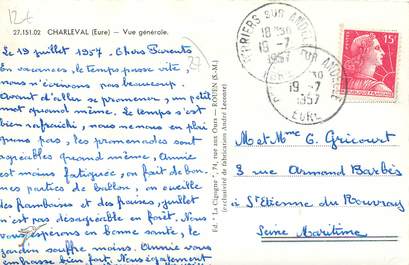 12€
27.151.02 CHARLEVAL (Eure) - Vue générale.
Le 19 juillet 1957. Chers Parents
En vacances, le temps passe vite,
nous n'écrivons pas beaucoup.
Avant d'aller se promener, un petit
mot quand même. Le temps s'est
bien rafraichi, nous ne nous en plai
gnons pas, les promenades sont
agréables quand même. Annie
est moins fatiguée, on fait de bon-
nes parties de ballon, on cueille
des framboises et des fraises, juillet
n'est pas désagréable en forêt. Nous
vous espérons en bonne santé, le
jardin souffre moins. Annie vous
embrasse bien fort. Nous également
27
Ed. "La Cigogne", 74, rue aux Ours - ROUEN (S.-M.)
(exclusivité de fabrication André Leconte)
PERRIERS SUR ANDELLE
18-30
16-7
1957
EURE
SUR ANDELLE
19-7
1957
EURE
15F
M et Mme G. Gricourt
3 rue Armand Barbès
à St Etienne du Rouvray
Seine Maritime